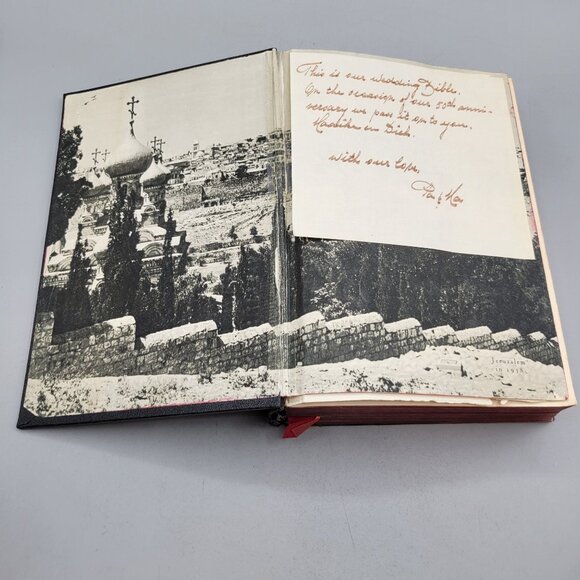 This is our wedding Bible.
On the occasion of our 50th anni-
versary we pass it on to you,
and Dick.
with our love,
Pa &
Jerusalem
in